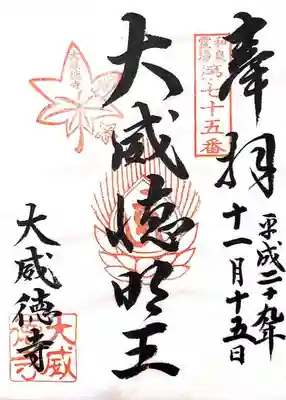 奉拝
平成二十九年
十一月十五日
第七十五番
大威徳明王
大威徳寺
大威
徳寺